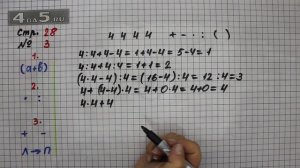 Стр. 28
№ 3
1.
(а+в)
2.
· :
3.
+ -
Л → П
4 4 4 4 + - · : ( )
4:4+4-4=1+4-4=5-4=1
4:4+4:4=1+1=2
(4·4-4):4=(16-4):4=12:4=3
4+(4-4)·4=4+0·4=4+0=4
4·4+4